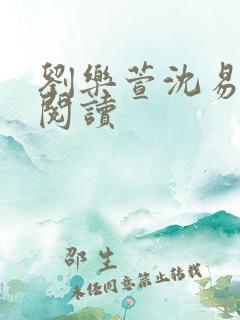 劉樂萱沈易
閱讀
邵生
未經同意禁止轉載